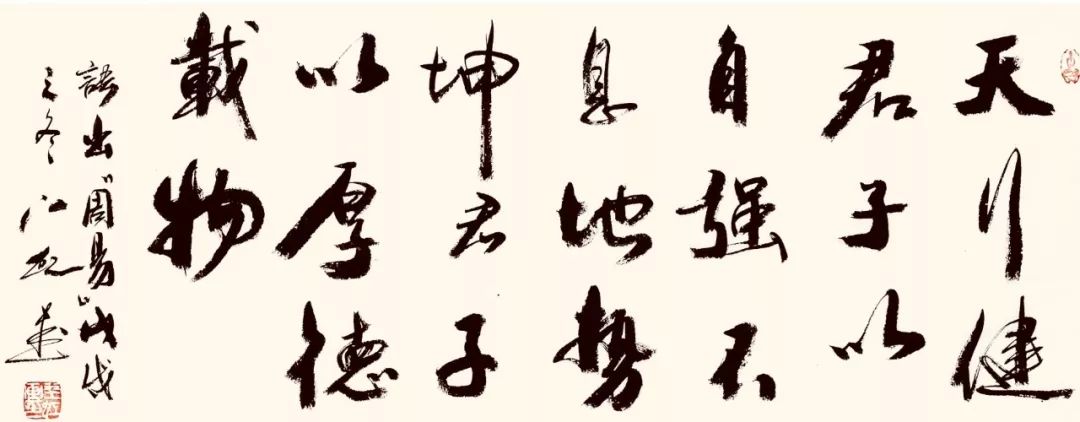 天行健
君子以
自强不
息地势
坤君子
以厚德
載物
語出《周易》戊戌
之冬